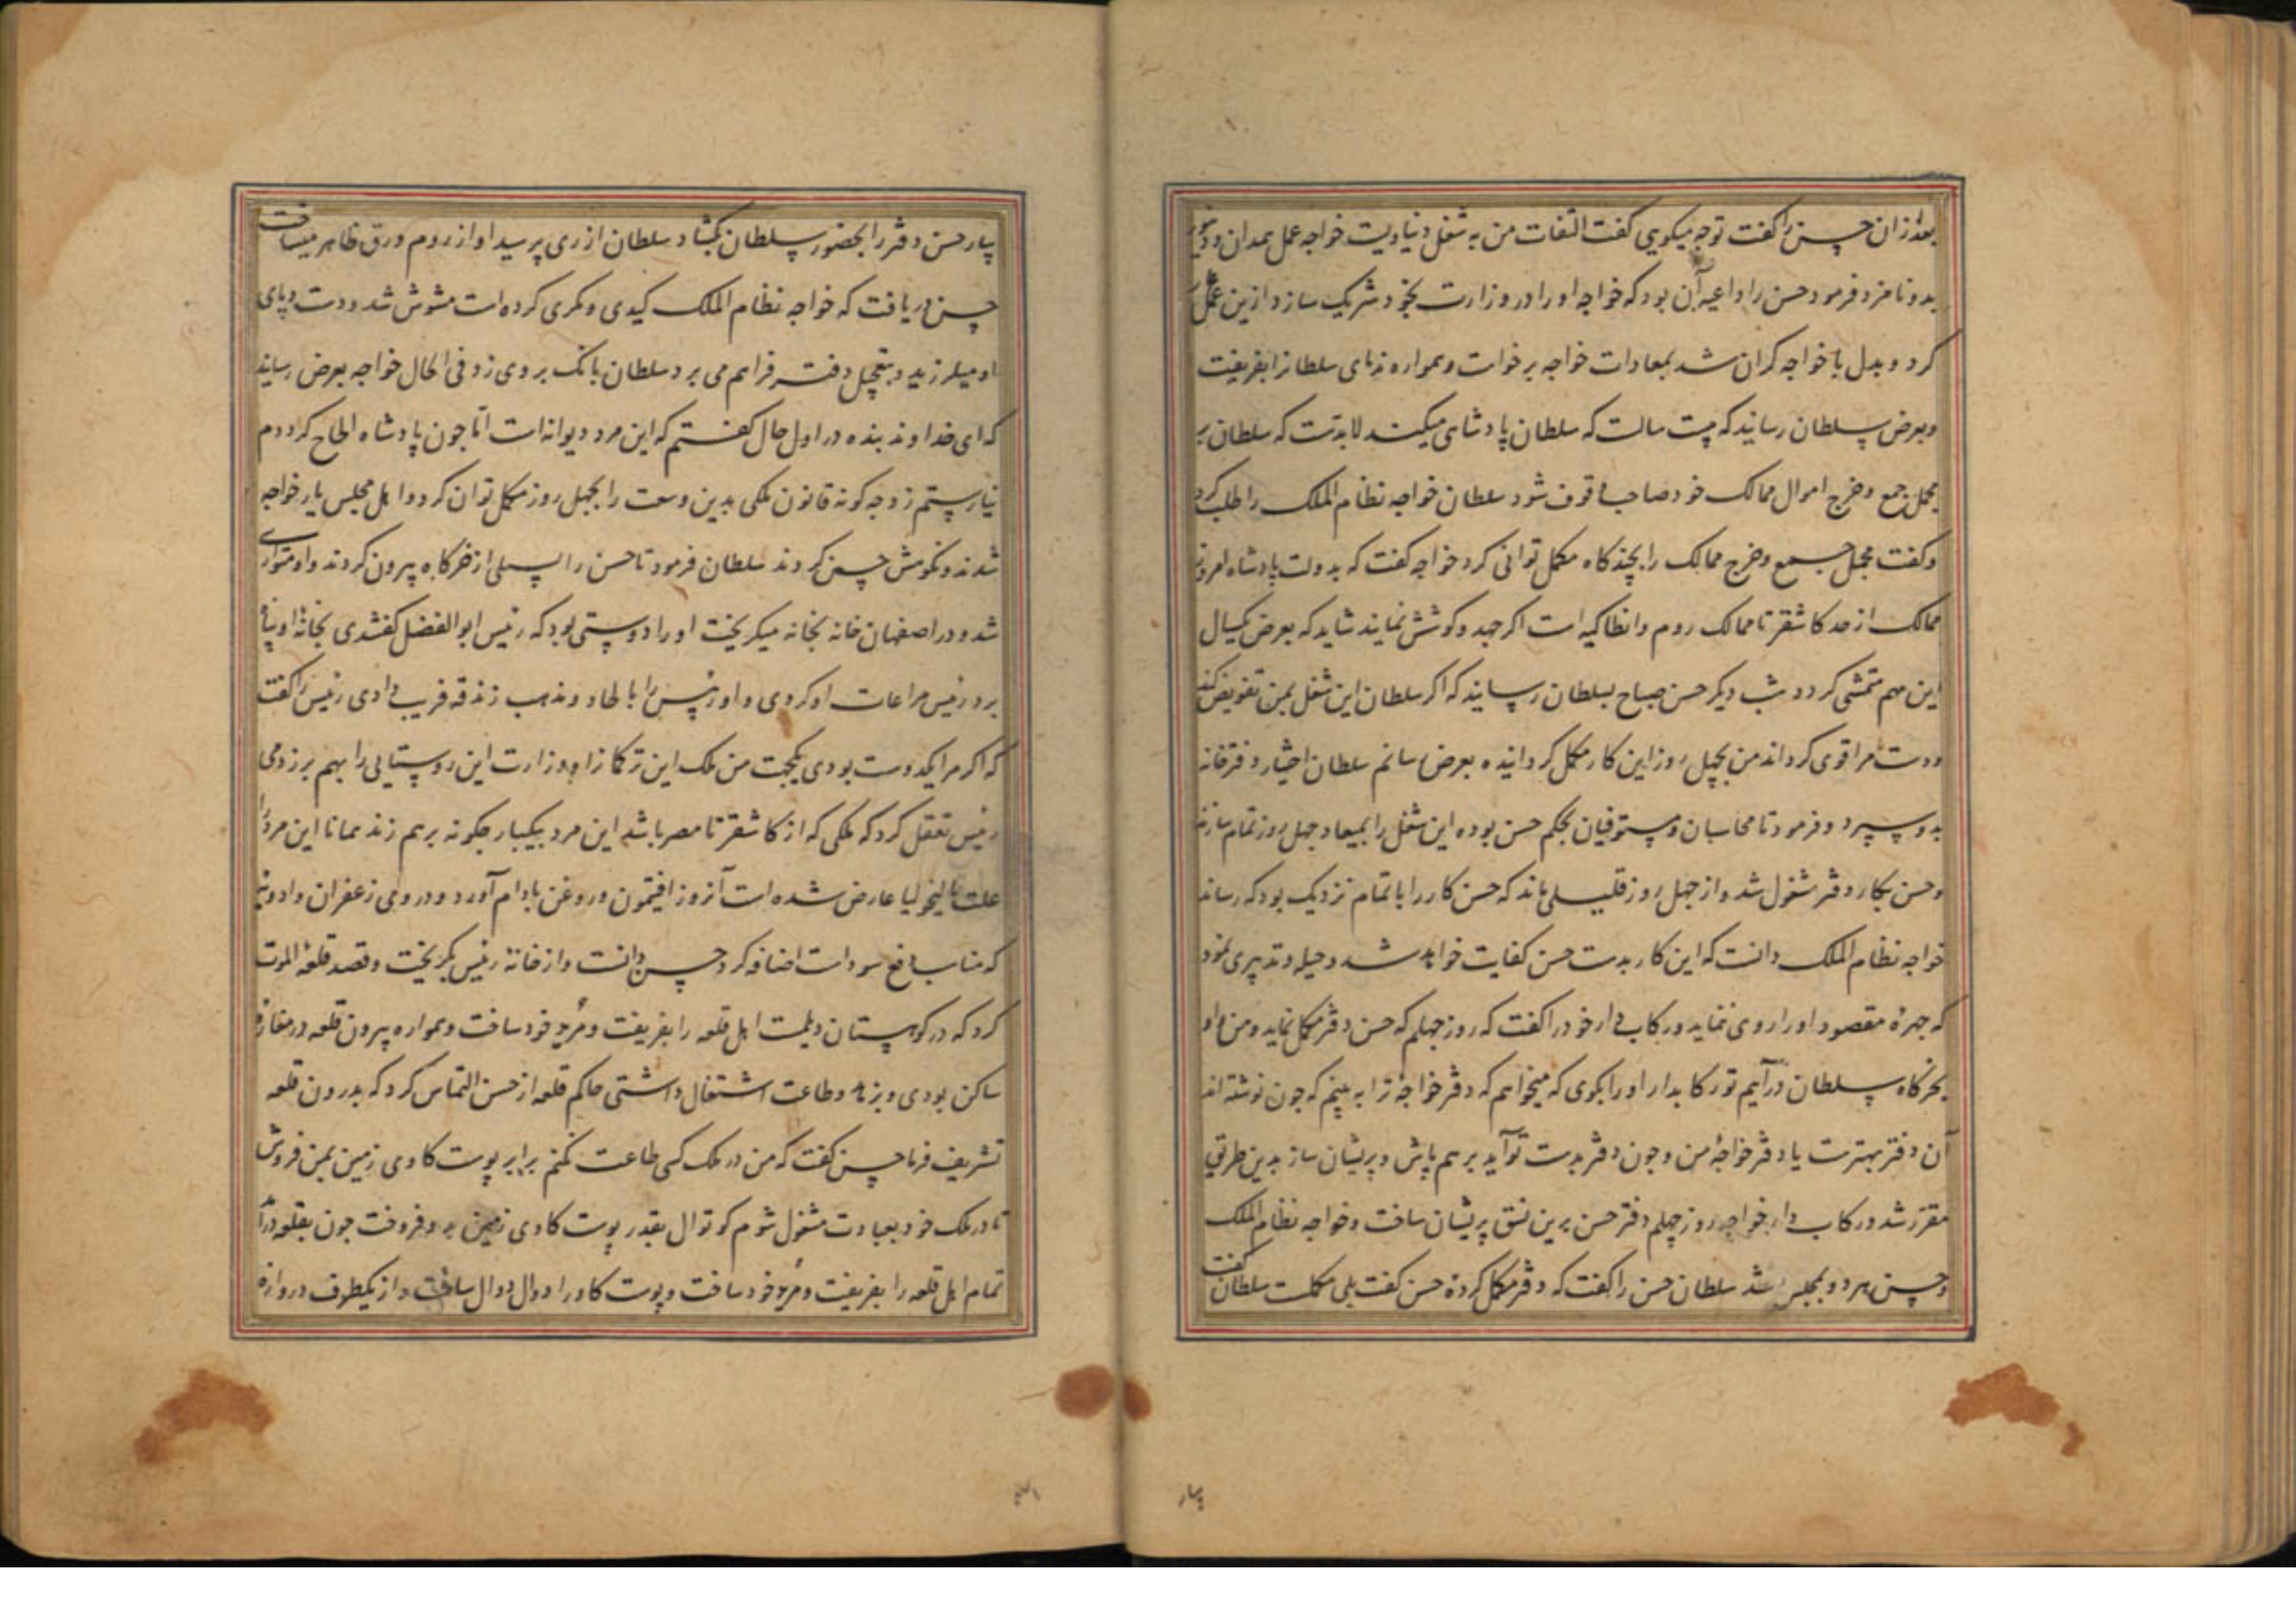 بعد ازان حسن را گفت تو چه میگویی گفت التفات من به شغل دنیاویست خواجه عمل همدان و دینور
بدو نامزد فرمود حسن را داعیه آن بود که خواجه او را در وزارت بخود شریک سازد ازین عمل
کرد و بدل با خواجه کران شد بمعادات خواجه برخاست و همواره ندمای سلطانرا بفریفت
و بعرض سلطان رسانید که بیست سالست که سلطان پادشاهی میکند لابدست که سلطان بر
مجمل جمع و خرج اموال ممالک خود صاحب وقوف شود سلطان خواجه نظام الملک را طلب کرد
و کفت مجمل جمع و خرج ممالک را بچندگاه مکمل توانی کرد خواجه کفت که بدولت پادشاه امروز
ممالک از حد کاشغر تا ممالک روم و انطاکیه است اکر جهد و کوشش نمایند شاید که بعرض یکسال
این مهم متمشی کردد شب دیکر حسن صباح بسلطان رسانید که اکر سلطان این شغل بمن تفویض کند
و دست مرا قوی کرداند من بچهل روز این کار مکمل کردانیده بعرض رسانم سلطان اختیار دفترخانه
بدو سپرد و فرمود تا محاسبان و مستوفیان بحکم حسن بوده این شغل را بمیعاد چهل روز تمام سازند
و حسن بکار دفتر مشغول شد و از چهل روز قلیلی ماند که حسن کار را باتمام نزدیک بود که رساند
خواجه نظام الملک دانست که این کار بدست حسن کفایت خواهد شد و حیله و تدبیری نمود
که چهرهٔ مقصود او را روی ننماید و رکاب دار خود را کفت که روز چهلم که حسن دفتر مکمل نماید و من و او
بخرکاه سلطان درآییم تو رکابدار او را بکوی که میخواهم که دفتر خواجه ترا به بینم که چون نوشته اند
آن دفتر بهترست یا دفتر خواجهٔ من و چون دفتر بدست تو آید برهم پاش و پریشان ساز بدین طریق
مقرر شد و رکاب دار خواجه روز چهلم دفتر حسن برین نسق پریشان ساخت و خواجه نظام الملک
و حسن هر دو بمجلس شد سلطان حسن را کفت که دفتر مکمل کردهٔ حسن کفت بلی مکملست سلطان کفت
بیار
بیار حسن دفتر را بحضور سلطان بکشاد سلطان از ری پرسید او از روم ورق ظاهر میساخت
حسن دریافت که خواجه نظام الملک کیدی و مکری کرده است مشوش شد و دست و پای
او میلرزید و بتعجیل دفتر فراهم می برد سلطان بانک بر وی زد فی الحال خواجه بعرض رسانید
که ای خداوند بنده در اول حال کفتم که این مرد دیوانه است اما چون پادشاه الحاح کرد دم
نیارستم زد چه کونه قانون ملکی بدین وسعت را بچهل روز مکمل توان کرد و اهل مجلس یار خواجه
شدند و نکوهش حسن کردند سلطان فرمود تا حسن را بسیلی از خرکاه بیرون کردند و او متواری
شد و در اصفهان خانه بخانه میکریخت او را دوستی بود که رئیس ابوالفضل کفشدی بخانهٔ او پناه
برد رئیس مراعات او کردی و او رئیس را با لحاد و مذهب زندقه فریب دادی رئیس را کفت
که اکر مرا یکدوست بودی یکجهت من ملک این ترکمانرا و وزارت این روستایی را بهم برزدمی
رئیس تعقل کرد که ملکی که از کاشغر تا مصر باشد این مرد بیکبار چکونه برهم زند همانا این مرد را
علت مالیخولیا عارض شده است آنروز افیتمون و روغن بادام آورد و در وی زعفران و ادویه
که مناسب دفع سوداست اضافه کرد حسن دانست و از خانهٔ رئیس بکریخت و قصد قلعهٔ الموت
کرد که در کوهستان دیلمست اهل قلعه را بفریفت و مرید خود ساخت و همواره بیرون قلعه در مغارهٔ
ساکن بودی و بزهد و طاعت اشتغال داشتی حاکم قلعه از حسن التماس کرد که بدرون قلعه
تشریف فرما حسن کفت که من در ملک کسی طاعت نکنم برابر پوست کاوی زمین بمن فروش
تا در ملک خود بعبادت مشغول شوم کوتوال بقدر پوست کاوی زمین بدو فروخت چون بقلعه درآمد
تمام اهل قلعه را بفریفت و مرید خود ساخت و پوست کاو را دوال دوال ساخت و از یکطرف دروازه